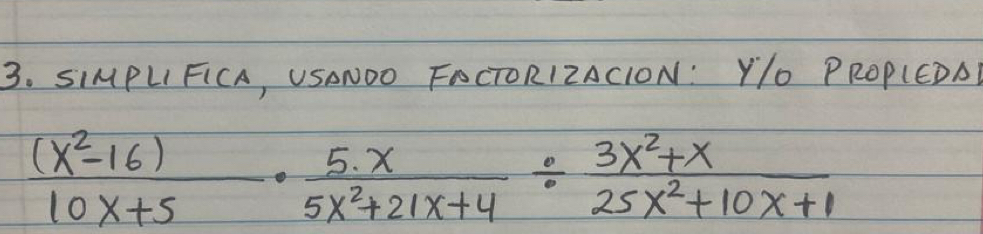 3. SIMPLIFICA, USANDO FACTORIZACION: Y/O PROPIEDAD
(X²-16) / 10X+5 · 5.X / 5X²+21X+4 ÷ 3X²+X / 25X²+10X+1